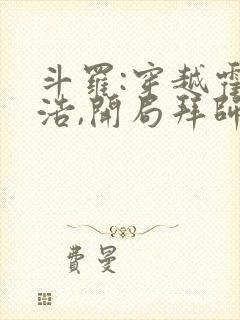 斗羅:穿越霍
浩,開局拜師
費曼